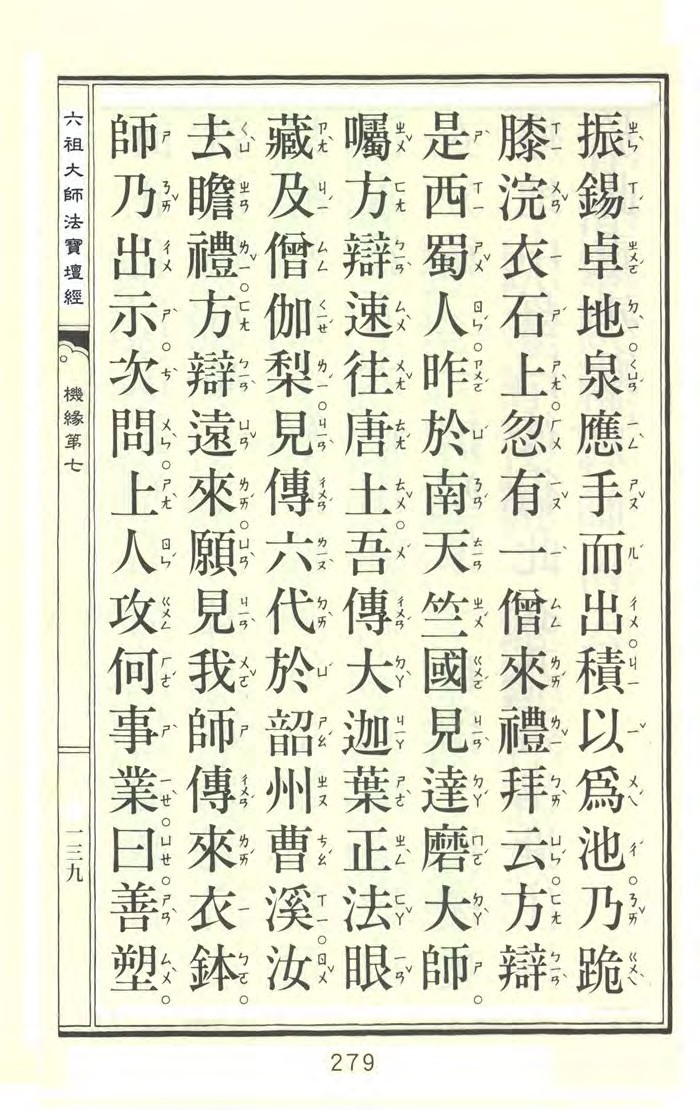 振錫卓地。泉應手而出。積以為池。乃跪
膝浣衣石上。忽有一僧來禮拜云。方辯
是西蜀人。昨於南天竺國。見達磨大師。
囑方辯速往唐土。吾傳大迦葉正法眼
藏。及僧伽梨。見傳六代。於韶州曹溪。汝
去瞻禮。方辯遠來。願見我師傳來衣鉢。
師乃出示。次問。上人攻何事業。曰。善塑。
六祖大師法寶壇經
機緣第七
一三九
279